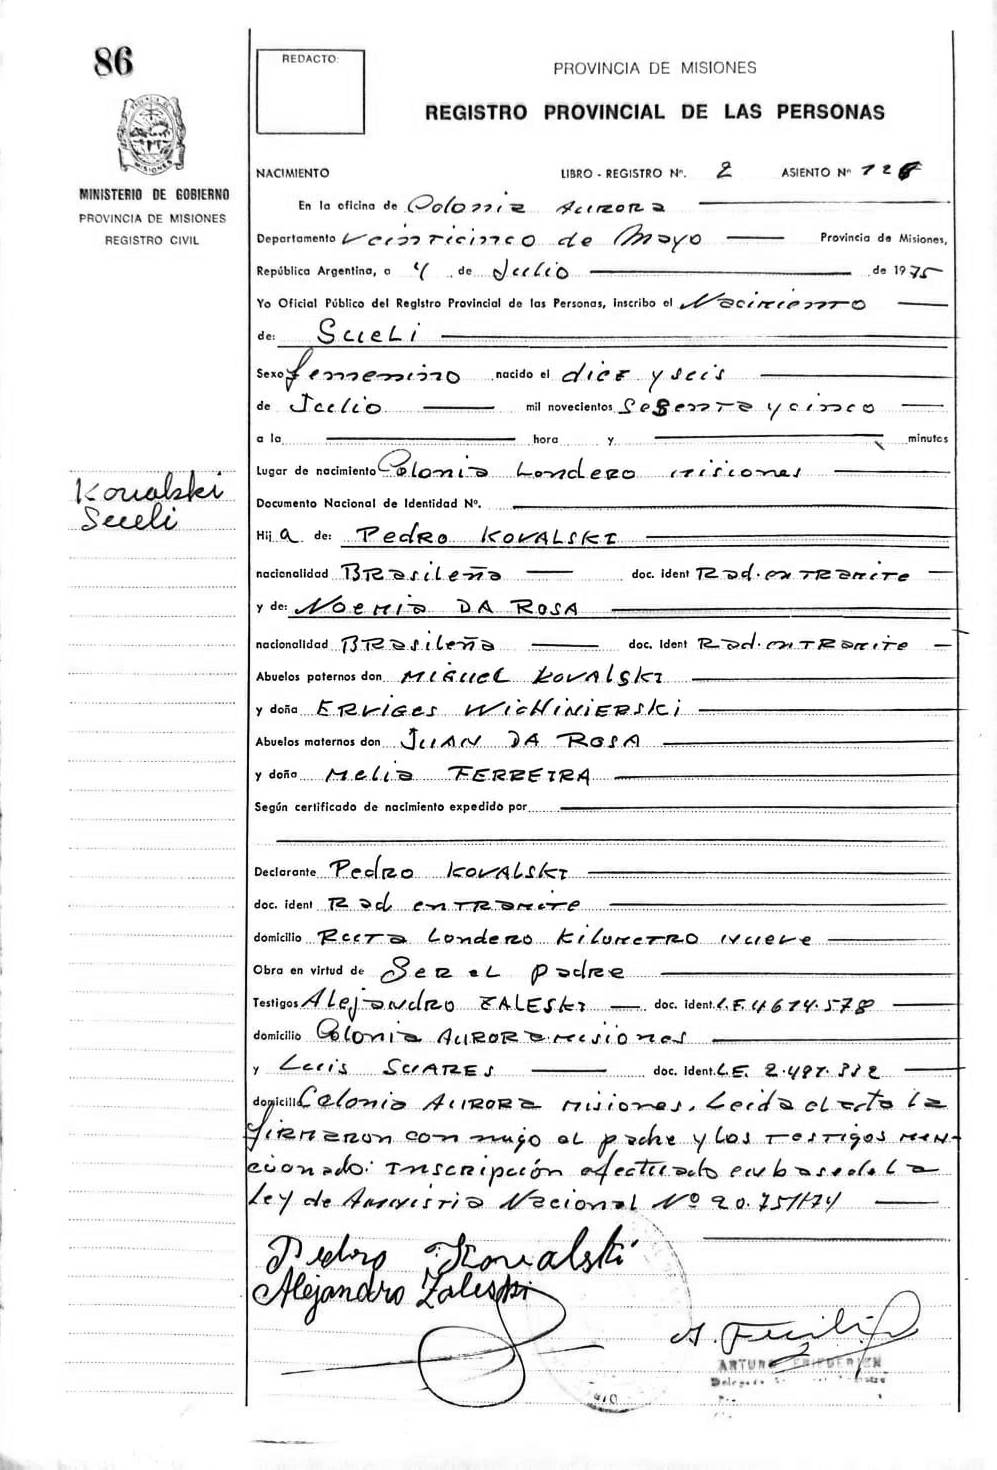 86
REDACTO:
PROVINCIA DE MISIONES
REGISTRO PROVINCIAL DE LAS PERSONAS
MISIONES
MINISTERIO DE GOBIERNO
PROVINCIA DE MISIONES
REGISTRO CIVIL
NACIMIENTO LIBRO - REGISTRO Nº. 2 ASIENTO Nº 128
En la oficina de Colonia Aurora
Departamento Veinticinco de Mayo Provincia de Misiones,
República Argentina, a 4 de Julio de 1975
Yo Oficial Público del Registro Provincial de las Personas, inscribo el Nacimiento
de: Sueli
Sexo femenino nacido el diez y seis
de Julio mil novecientos sesenta y cinco
a la hora y minutos
Lugar de nacimiento Colonia Londero misiones
Kowalski
Sueli
Documento Nacional de Identidad Nº.
Hij a de: Pedro KOVALSKI
nacionalidad Brasileña doc. ident Rad. en Tramite
y de: Noemia DA ROSA
nacionalidad Brasileña doc. ident Rad. en Tramite
Abuelos paternos don Miguel Kovalski
y doña Erviges Wichinierski
Abuelos maternos don Juan DA ROSA
y doña Melia FERREIRA
Según certificado de nacimiento expedido por
Declarante Pedro KOVALSKI
doc. ident Rad en Tramite
domicilio Ruta Londero Kilometro nueve
Obra en virtud de Ser el padre
Testigos Alejandro ZALESKI doc. ident. L.E. 4614.578
domicilio Colonia Aurora misiones
y Luis SUARES doc. ident. L.E. 2.497.332
domicili Colonia Aurora misiones. Leida el acta la
firmaron con migo el padre y los testigos men-
cionado: Inscripción efectuado en base de la
Ley de Amnistia Nacional Nº 20.751/74
Pedro Kowalski
Alejandro Zaleski
A. Friedrich
ARTURO